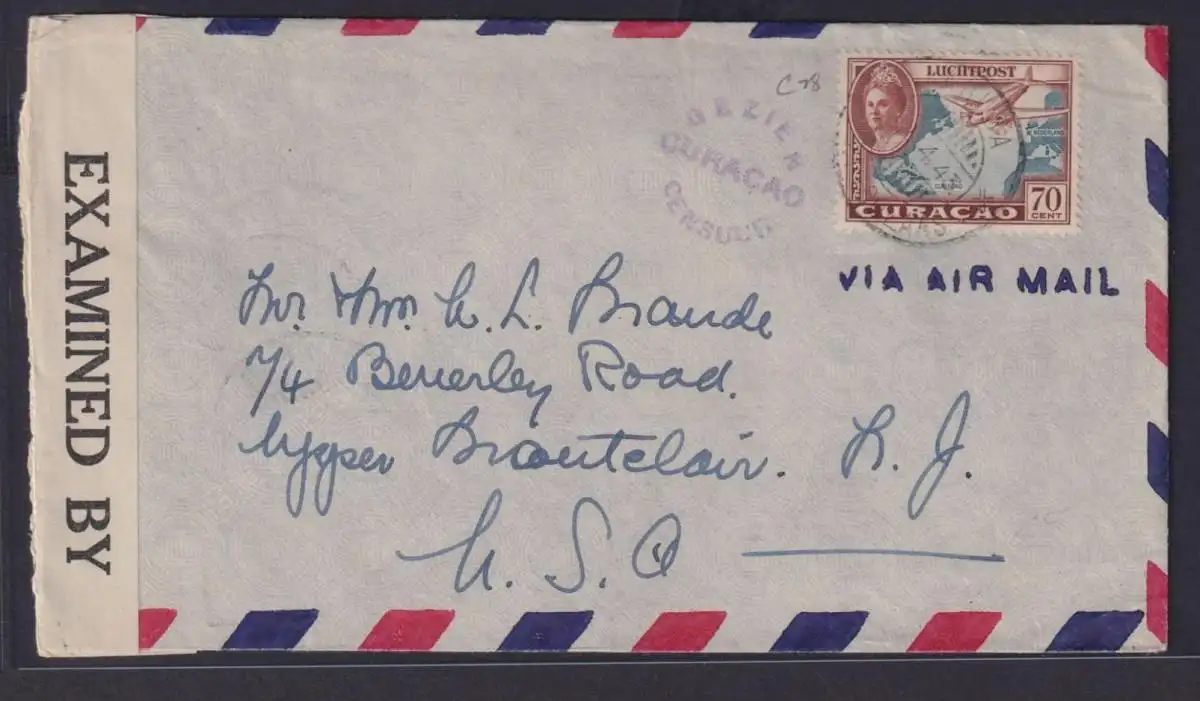 EXAMINED BY
C78
GEZIEN
CURAÇAO
CENSUUR
LUCHTPOST
NEDERLAND
CURAÇAO
70
CENT
VIA AIR MAIL
Mr. & Mrs. A. L. Brande
74 Beverley Road.
Upper Montclair. N. J.
U. S. A